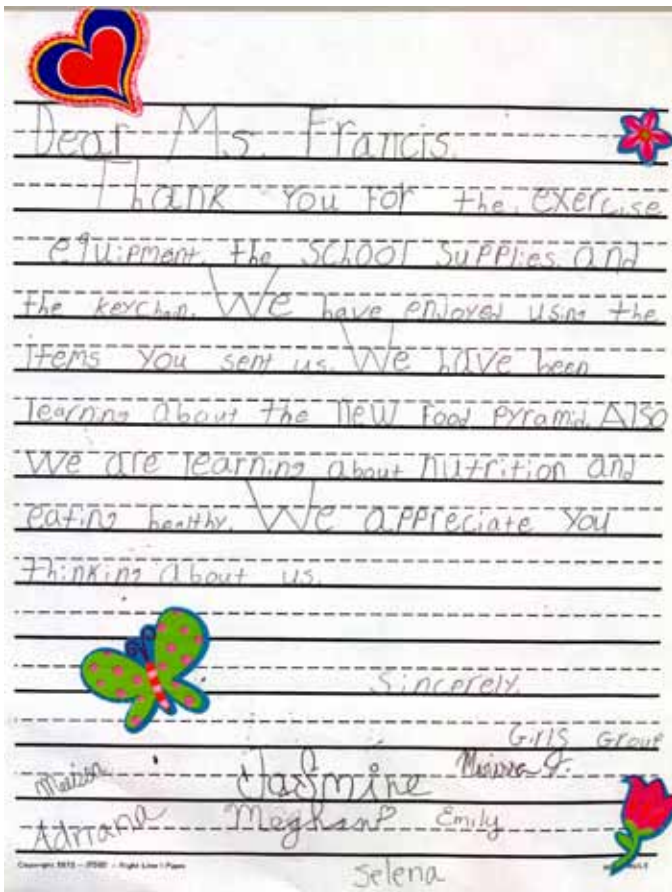 Dear Ms. Francis.
Thank you for the exercise
equipment, the school supplies, and
the keychain. We have enjoyed using the
items you sent us. We have been
learning about the new food pyramid. Also
we are learning about nutrition and
eating healthy. We appreciate you
thinking about us.
Sincerely,
Girls Group
Jasmine
Adriana Meghan Emily
Selena